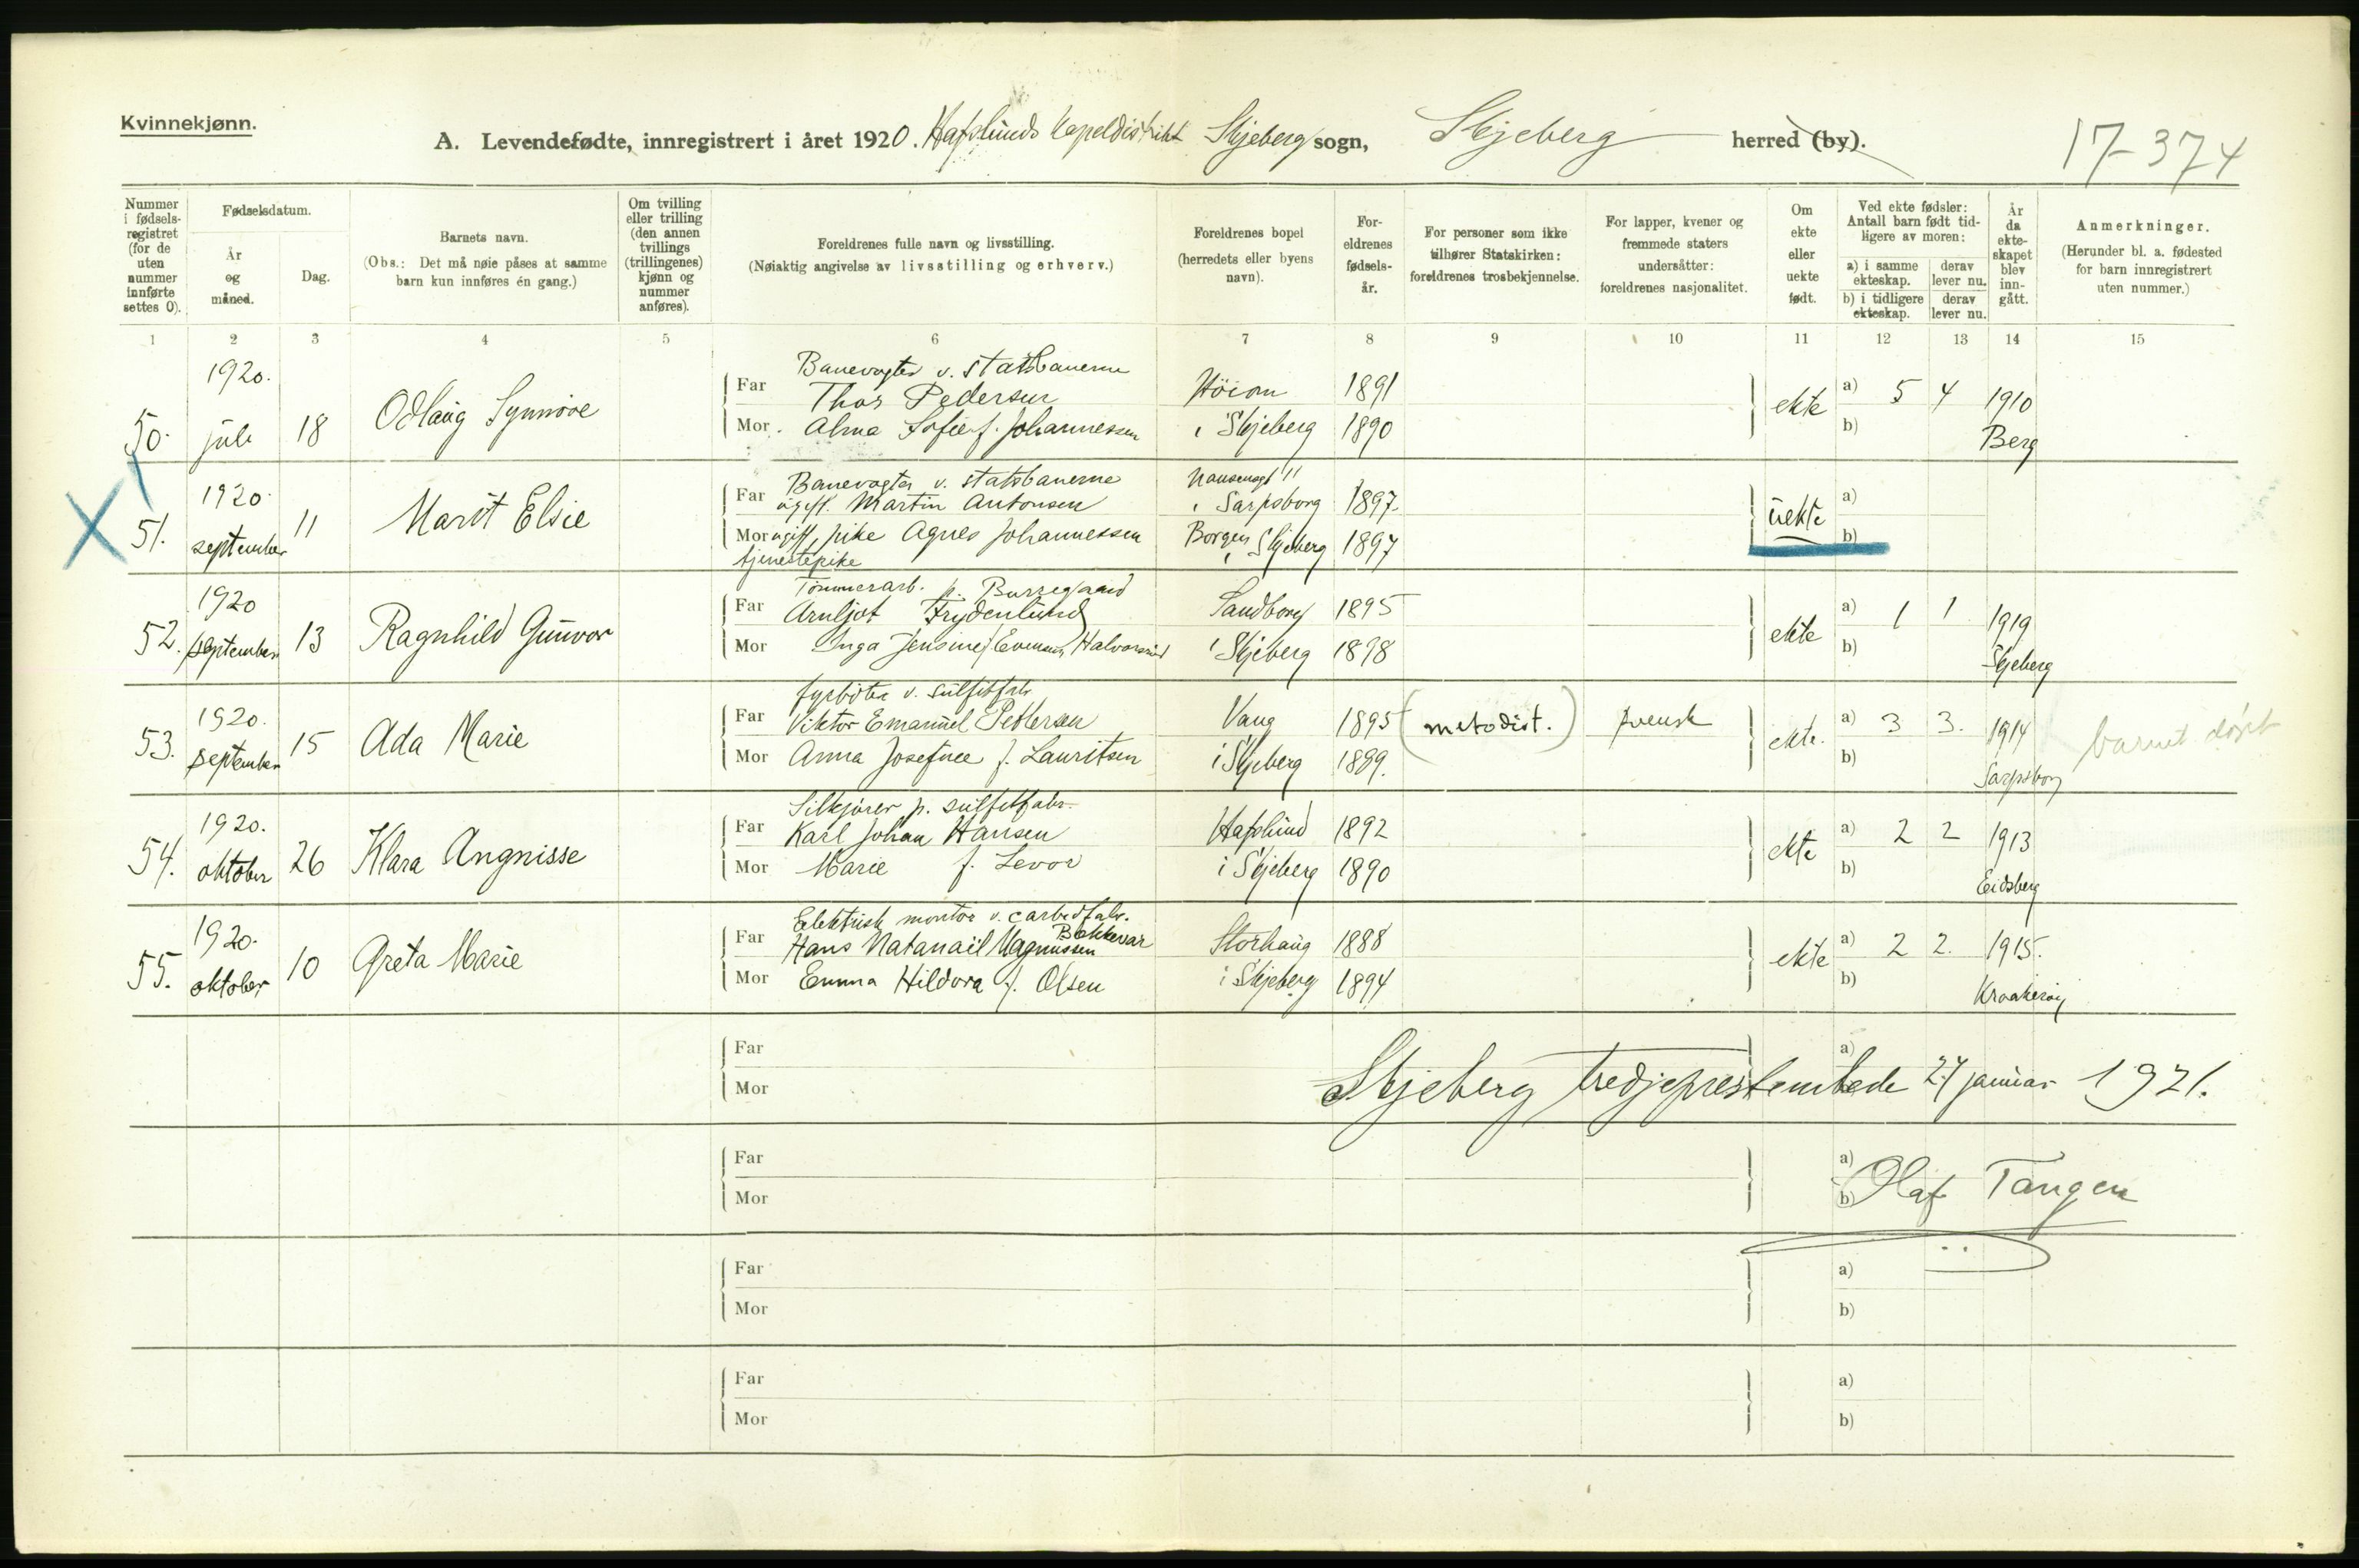 Kvinnekjønn.
A. Levendefødte, innregistrert i året 1920. Hafslunds kapeldistrikt Skjeberg sogn, Skjeberg herred (by).
17-374
Nummer i fødsels-registret (for de uten nummer innførte settes 0).
Fødselsdatum.
År og måned.
Dag.
Barnets navn.
(Obs.: Det må nøie påses at samme barn kun innføres én gang.)
Om tvilling eller trilling (den annen tvillings (trillingenes) kjønn og nummer anføres).
Foreldrenes fulle navn og livsstilling.
(Nøiaktig angivelse av livsstilling og erhverv.)
Foreldrenes bopel (herredets eller byens navn).
Foreldrenes fødsels-år.
For personer som ikke tilhører Statskirken: foreldrenes trosbekjennelse.
For lapper, kvener og fremmede staters undersåtter: foreldrenes nasjonalitet.
Om ekte eller uekte født.
Ved ekte fødsler: Antall barn født tidligere av moren:
a) i samme ekteskap.
derav lever nu.
b) i tidligere ekteskap.
derav lever nu.
År da ekte-skapet blev inn-gått.
Anmerkninger.
(Herunder bl. a. fødested for barn innregistrert uten nummer.)
1 2 3 4 5 6 7 8 9 10 11 12 13 14 15
1920.
Banevogter v. statsbanerne
Far Thor Pedersen Höien 1891
50. juli 18 Odlaug Synnöve ekte a) 5 4 1910
Mor. Alma Sofie f. Johannessen i Skjeberg 1890 b) Berg
1920.
Banevogter v. statsbanerne
Far ugift. Martin Antonsen i Sarpsborg 1897 a)
X 51. september 11 Marit Elsie uekte
Mor ugift pike Agnes Johannessen Borgen i Skjeberg 1897 b)
tjenestepike
1920
Tömmerarb. p. Borregaard
Far Arnljot Frydenlund Sandborg 1895 a) 1 1 1919
52. september 13 Ragnhild Gunvor ekte
Mor Inga Jensine Halvorsrud i Skjeberg 1898 b) Skjeberg
1920.
fyrböter v. sulfitfabr.
Far Viktor Emanuel Pettersen Vang 1895 (metodist.) svensk a) 3 3. 1914
53. september 15 Ada Marie ekte. barnet døpt
Mor Anna Josefine f. Lauritsen i Skjeberg 1899. b) Sarpsborg
1920.
p. sulfitfabr.
Far Karl Johan Hansen Hafslund 1892 a) 2 2 1913
54. oktober 26 Klara Angnisse ekte
Mor Marie f. Levor i Skjeberg 1890 b) Eidsberg
1920.
Elektrisk montör v. carbidfabr.
Bakkevar
Far Hans Natanail Magnussen Storhaug 1888 a) 2 2. 1915.
55. oktober 10 Greta Marie ekte
Mor Emma Hildora f. Olsen i Skjeberg 1894 b) Kraakeröy
Far a)
Mor
Skjeberg tredjeprestembede 24 januar 1921.
Far a)
Mor b)
Olaf Tangen
Far a)
Mor b)
Far a)
Mor b)